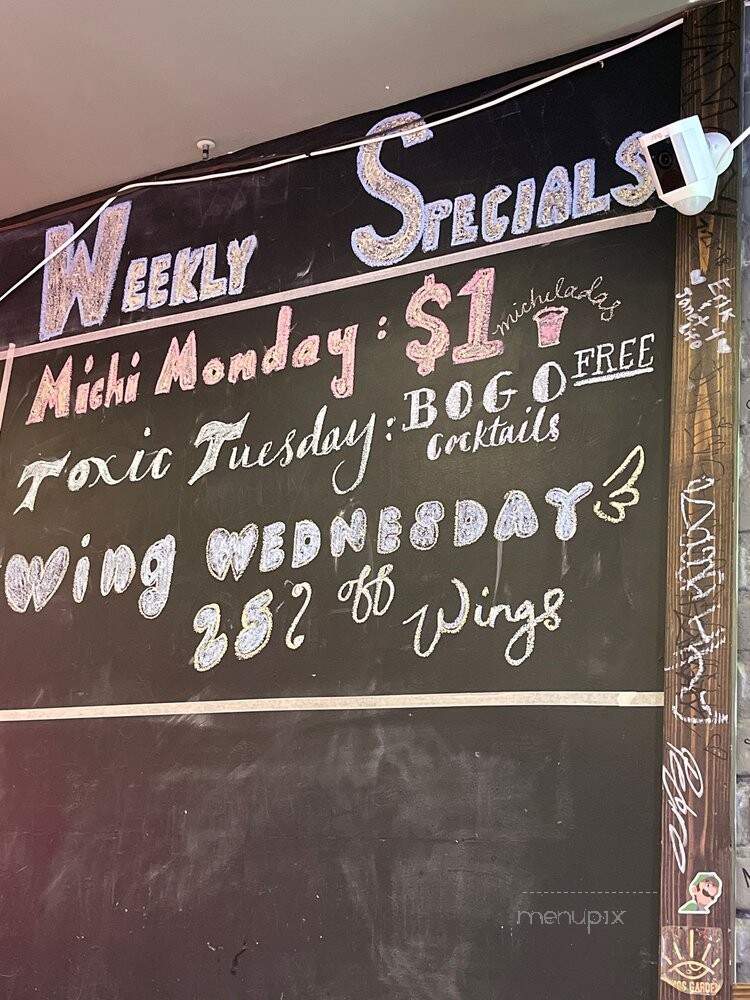 Weekly Specials
Michi Monday: $1 micheladas
Toxic Tuesday: BOGO FREE
Cocktails
Wing Wednesday
25% off Wings
menupix